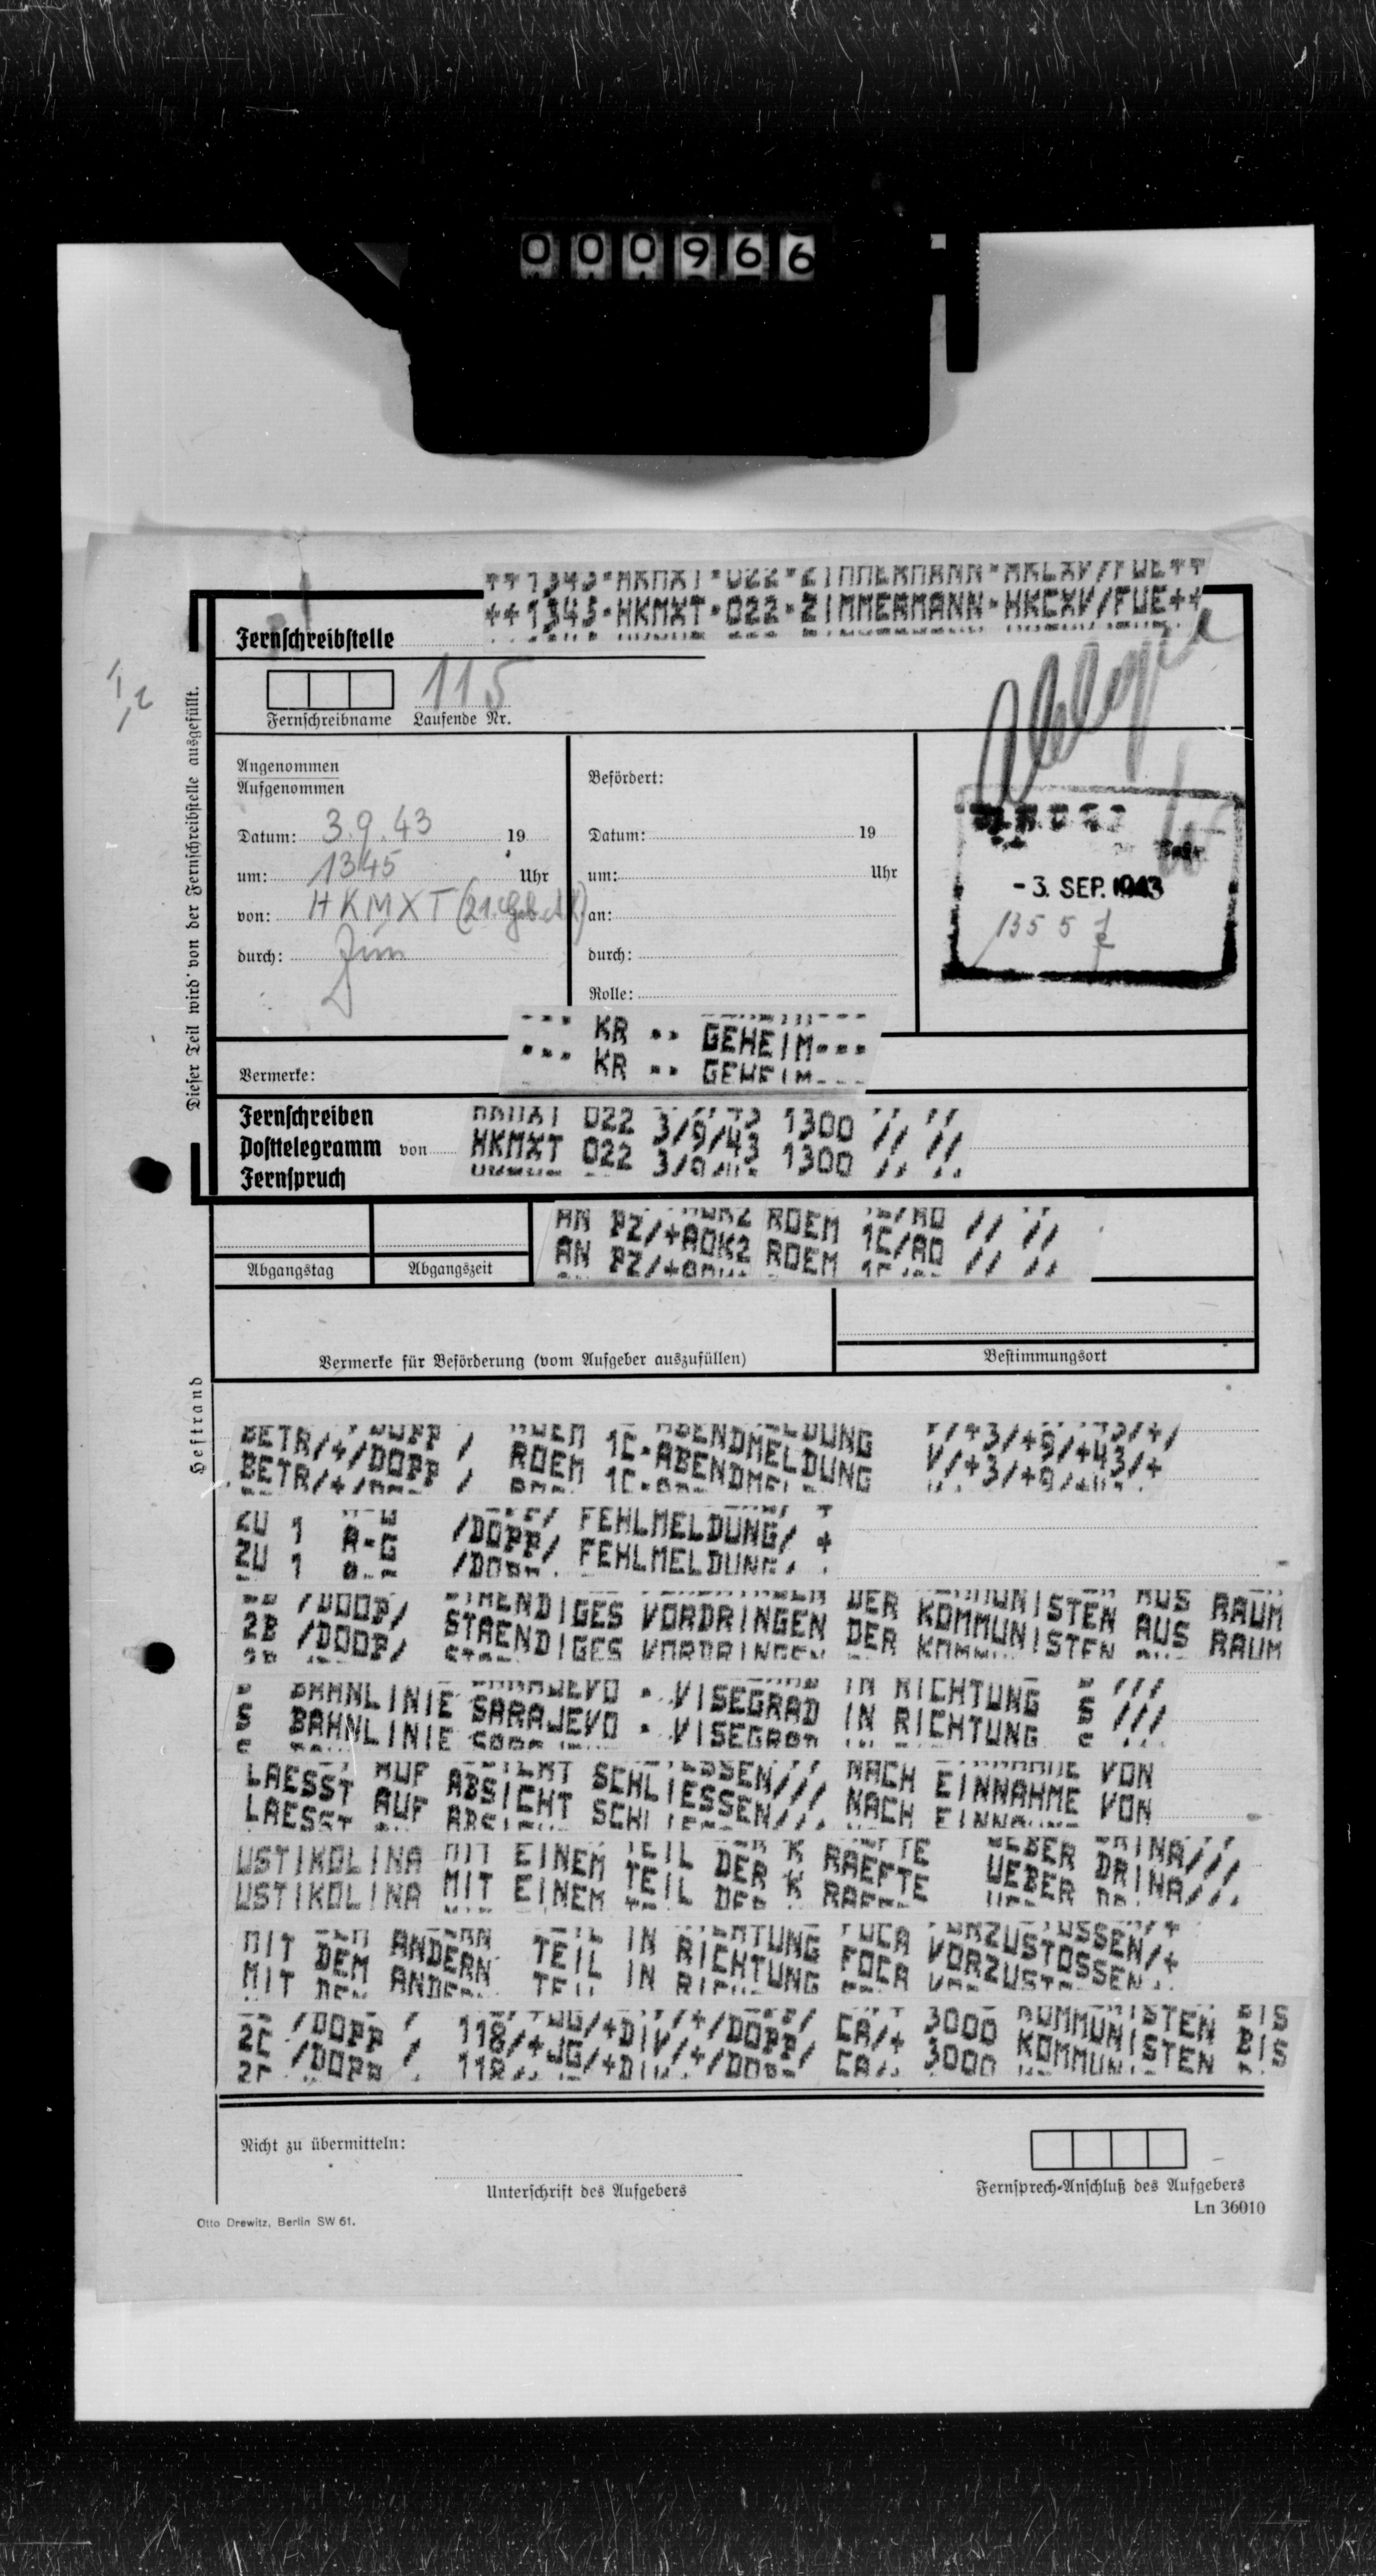 000966
++1345-HKMXT-022-ZIMMERMANN-HKCXV/FUE++
Fernschreibstelle
115
Fernschreibname Laufende Nr.
Dieser Teil wird von der Fernschreibstelle ausgefüllt.
Angenommen
Aufgenommen
Datum: 3.9.43 19
um: 1345 Uhr
von: HKMXT (21. Geb.
durch:
Befördert:
Datum: 19
um: Uhr
an:
durch:
Rolle:
-3. SEP. 1943
1355
--- KR -- GEHEIM---
Vermerke:
Fernschreiben
Posttelegramm von
Fernspruch
HKMXT 022 3/9/43 1300 // //
AN PZ/+AOK2 ROEM 1C/AO // //
Abgangstag Abgangszeit
Vermerke für Beförderung (vom Aufgeber auszufüllen) Bestimmungsort
Heftrand
BETR/+/DOPP / ROEM 1C-ABENDMELDUNG V/+3/+9/+43/+
ZU 1 A-G /DOPP/ FEHLMELDUNG/ +
2B /DOOP/ STAENDIGES VORDRINGEN DER KOMMUNISTEN AUS RAUM
S BAHNLINIE SARAJEVO - VISEGRAD IN RICHTUNG S ///
LAESST AUF ABSICHT SCHLIESSEN/// NACH EINNAHME VON
USTIKOLINA MIT EINEM TEIL DER K RAEFTE UEBER DRINA///
MIT DEM ANDERN TEIL IN RICHTUNG FOCA VORZUSTOSSEN/+
2C /DOPP / 118/+JG/+DIV/+/DOPP/ CA/+ 3000 KOMMUNISTEN BIS
Nicht zu übermitteln:
Unterschrift des Aufgebers
Fernsprech-Anschluß des Aufgebers
Ln 36010
Otto Drewitz, Berlin SW 61.